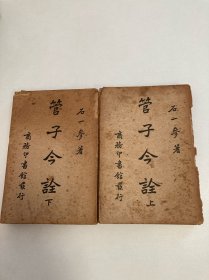 石一參著
管子今詮
上
商務印書館發行
石一參著
管子今詮
下
商務印書館發行